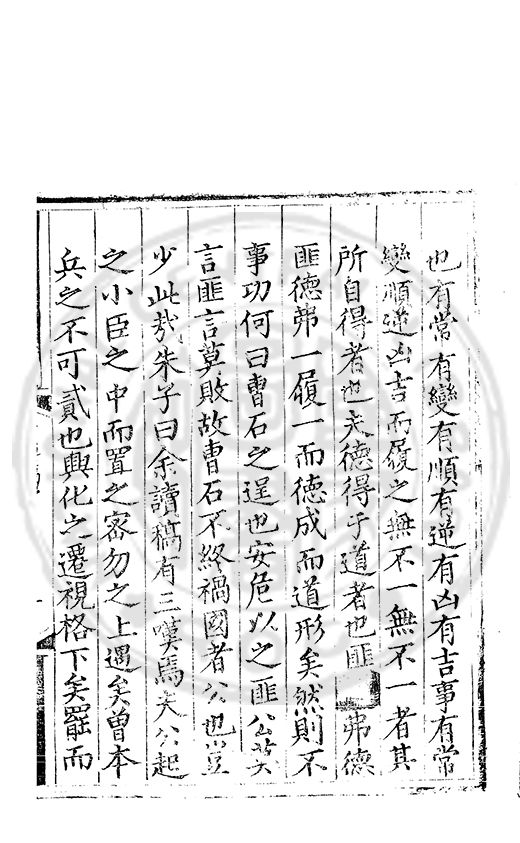 也有常有變有順有逆有凶有吉事有常
變順逆凶吉而履之無不一無不一者其
所自得者也夫德得于道者也匪 弗德
匪德弗一履一而德成而道形矣然則不
事功何曰曹石之逞也安危以之匪公莫
言匪言莫敗故曹石不終禍國者公也豈
少此哉朱子曰余讀稿有三嘆焉夫公起
之小臣之中而置之密勿之上遇矣曾本
兵之不可貳也興化之遷視格下矣罷而